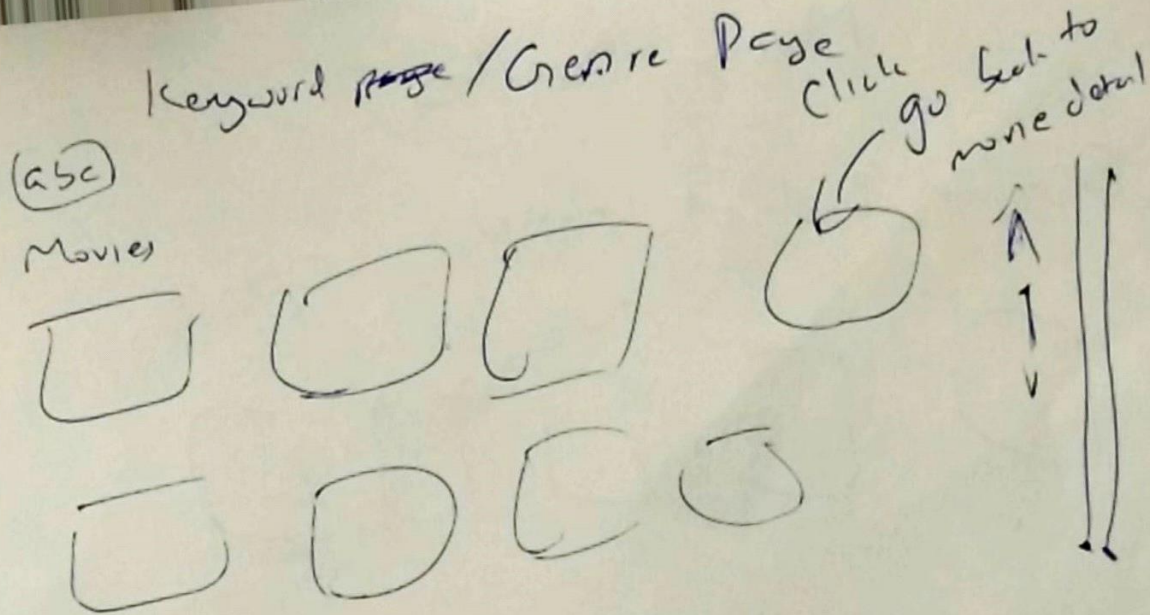 Keyword / Genre Page
Click
go back to
movie detail
abc
Movies